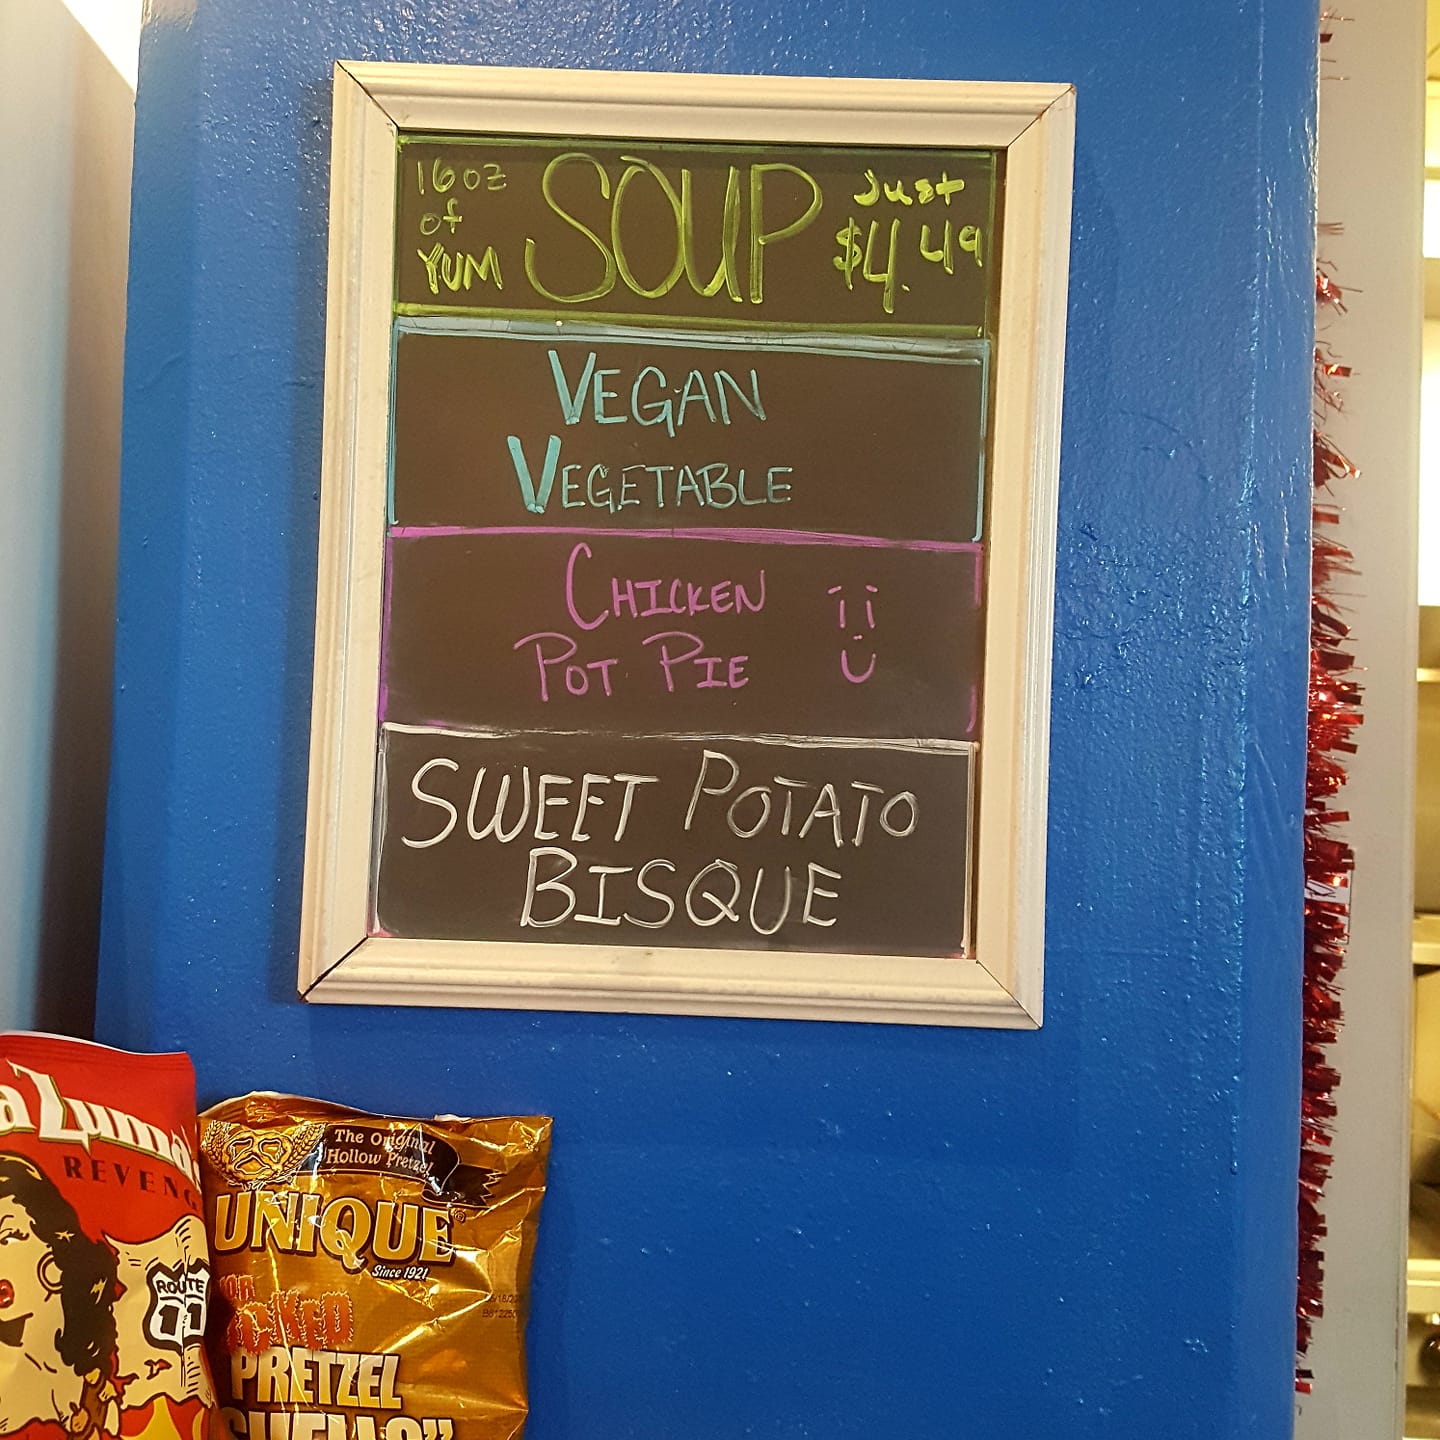 16oz
of
YUM
SOUP
Just
$4.49
VEGAN
VEGETABLE
CHICKEN
POT PIE
SWEET POTATO
BISQUE
REVENG
ROUTE
11
The Original
Hollow Pretzel
UNIQUE
Since 1921
PRETZEL